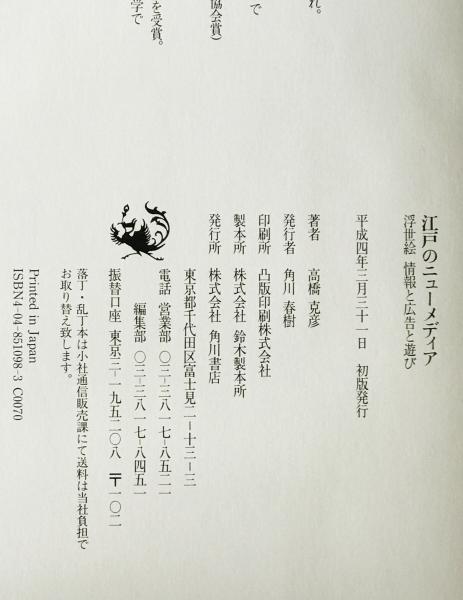 れ。
で
協会賞)
を受賞。
学で
江戸のニューメディア
浮世絵 情報と広告と遊び
平成四年三月三十一日 初版発行
著者 高橋 克彦
発行者 角川 春樹
印刷所 凸版印刷株式会社
製本所 株式会社 鈴木製本所
発行所 株式会社 角川書店
東京都千代田区富士見二−十三−三
電話 営業部 〇三−三八一七−八五二一
編集部 〇三−三八一七−八四五一
振替口座 東京三−一九五二〇八 〒一〇二
落丁・乱丁本は小社通信販売課にて送料は当社負担で
お取り替え致します。
Printed in Japan
ISBN4-04-851098-3 C0070